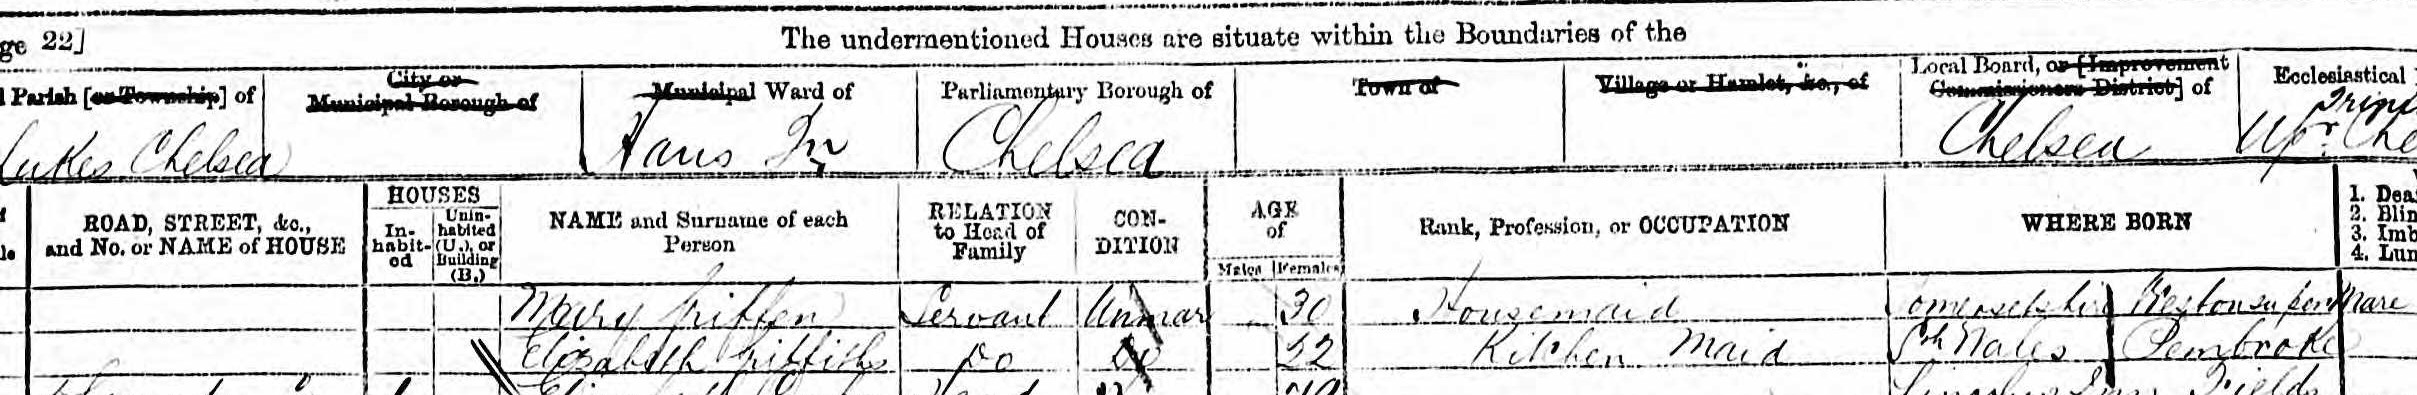 ge 22]
The undermentioned Houses are situate within the Boundaries of the
Parish [or Township] of
City or Municipal Borough of
Municipal Ward of
Parliamentary Borough of
Town of
Village or Hamlet, &c., of
Local Board, or [Improvement Commissioners District] of
Ecclesiastical
Lukes Chelsea
Hans
Chelsea
Chelsea
Upr Che
ROAD, STREET, &c., and No. or NAME of HOUSE
HOUSES
In-habit-ed
Unin-habited (U.), or Building (B.)
NAME and Surname of each Person
RELATION to Head of Family
CON-DITION
AGE of
Males
Females
Rank, Profession, or OCCUPATION
WHERE BORN
1. Dea
2. Blin
3. Imb
4. Lun
Mary Griffen Servant Unmar 30 Housemaid Somersetshire Westonsuper Mare
Elizabeth Griffiths Do Do 22 Kitchen Maid Sth Wales Pembroke
Fields